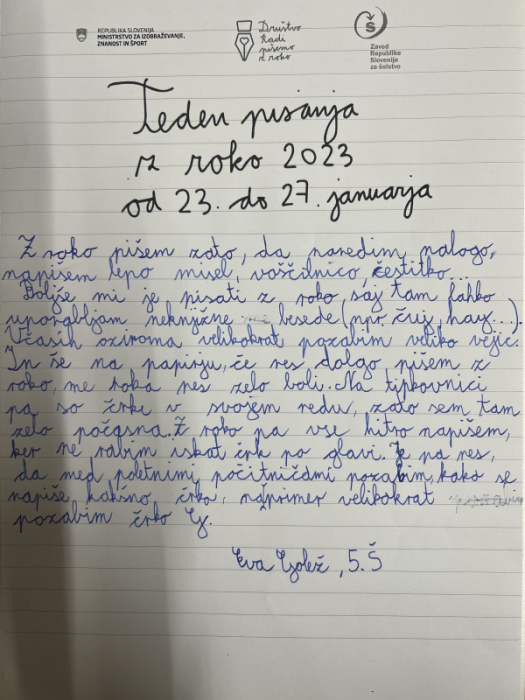 REPUBLIKA SLOVENIJA
MINISTRSTVO ZA IZOBRAŽEVANJE,
ZNANOST IN ŠPORT
Društvo
Radi
pišemo
z roko
Zavod
Republike
Slovenije
za šolstvo
Teden pisanja
z roko 2023
od 23. do 27. januarja
Z roko pišem zato, da naredim nalogo,
napišem lepo misel, voščilnico, čestitko...
Boljše mi je pisati z roko, saj tam lahko
uporabljam neknjižne besede (npr. čuj, nay...).
Včasih oziroma velikokrat pozabim veliko vejic.
In še na papirju, če res dolgo pišem z
roko, me roka res zelo boli. Na tipkovnici
pa so črke v svojem redu, zato sem tam
zelo počasna. Z roko pa vse hitro napišem,
ker ne rabim iskat črk po glavi. Je pa res,
da med poletnimi počitnicami pozabim, kako se
napiše kakšno črko, naprimer velikokrat
pozabim črko G.
Eva Golež, 5.Š